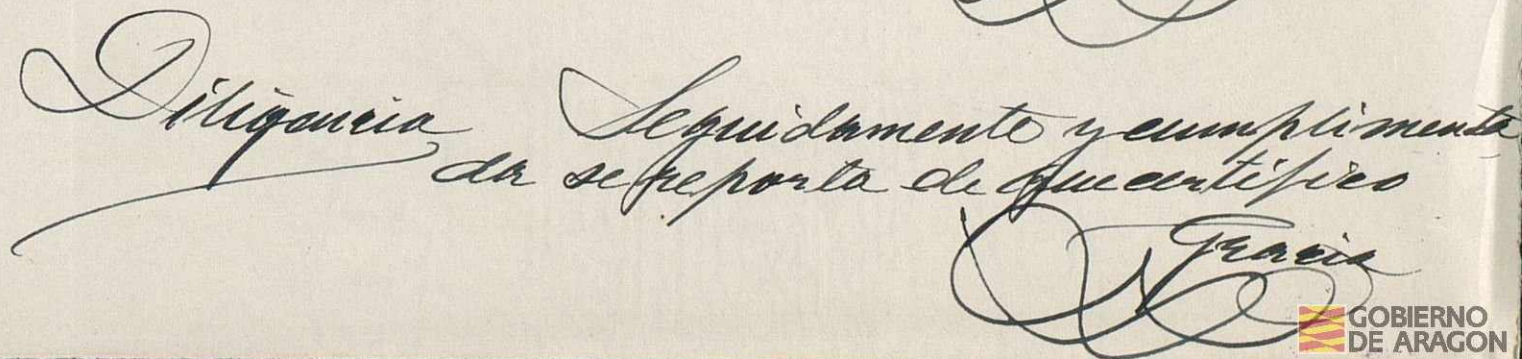 Diligencia Seguidamente y cumplimenta
da se reporta de que certifico
Gracia
GOBIERNO
DE ARAGON